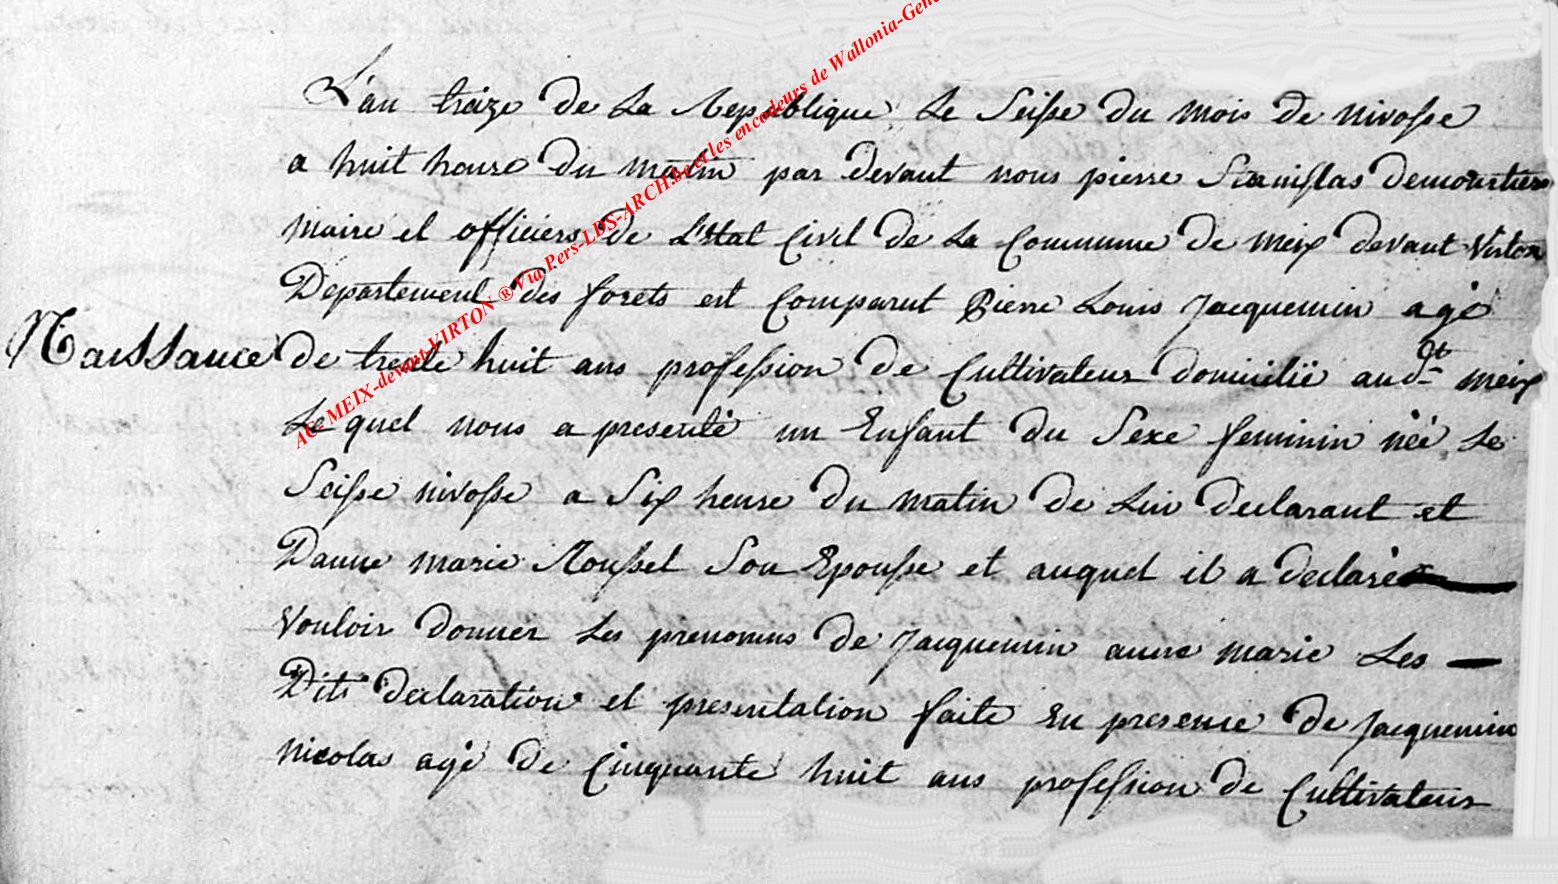 L'an treize de La Republique Le Seisse du mois de nivosse
a huit heure du matin par devant nous pierre Stanislas Demoustiers
maire et officiers de L'Etat Civil de La Commune de meix devant Virton
Departement des forets est Comparut Pierre Louis Jacquemin agé
Naissance de trente huit ans profession de Cultivateur domicilié aud.t meix
Le quel nous a presenté un Enfant du Sexe feminin née Le
Seisse nivosse a Six heure du matin de Lui declarant et
Danne marie Rousset Son Epousse et auquel il a declaré
Vouloir donner Les prenoms de Jacquemin anne marie Les
Dits declaration et presentation faite En presence de Jacquemin
nicolas agé de Cinquante huit ans profession de Cultivateur
AC MEIX-devant-VIRTON ® Via Pers-LDS-ARCH.be et les encodeurs de Wallonia-Gene